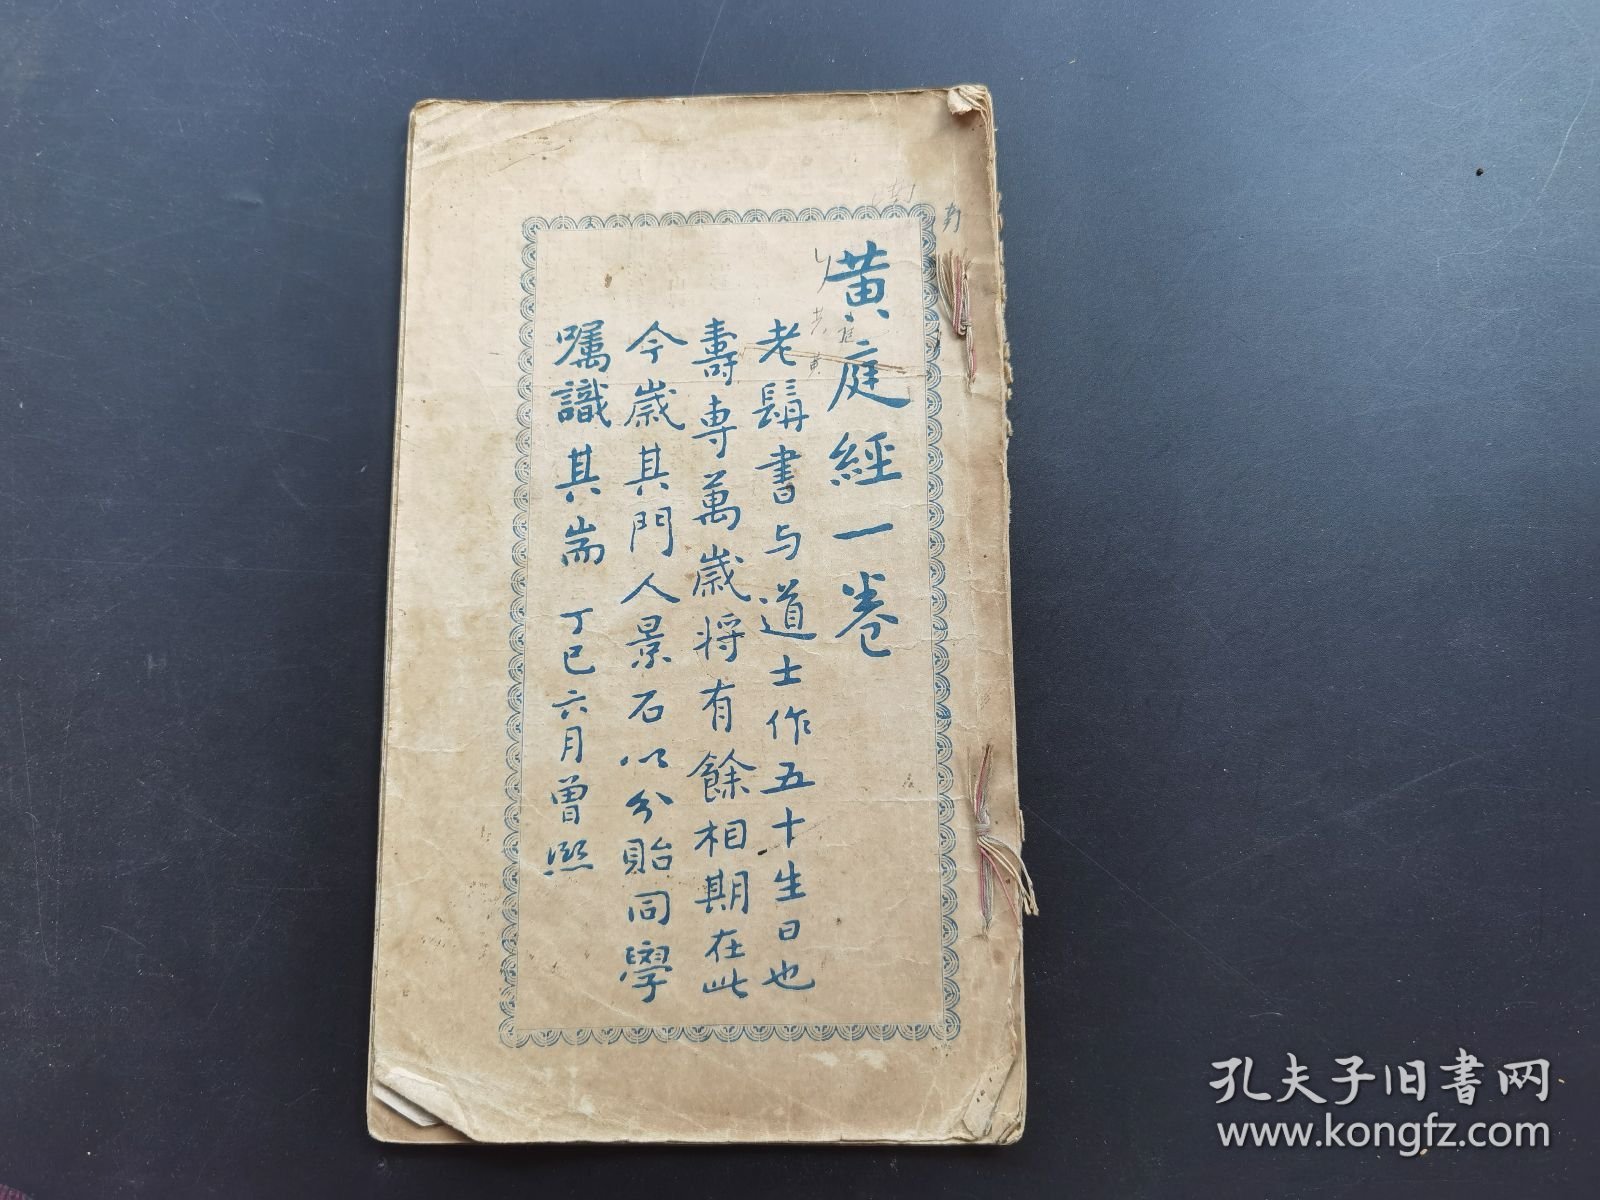 黄庭經一卷
老髯書与道士作五十生日也
壽專萬歲將有餘相期在此
今歲其門人景石以分貽同學
囑識其耑 丁巳六月曾熙
孔夫子旧书网
www.kongfz.com